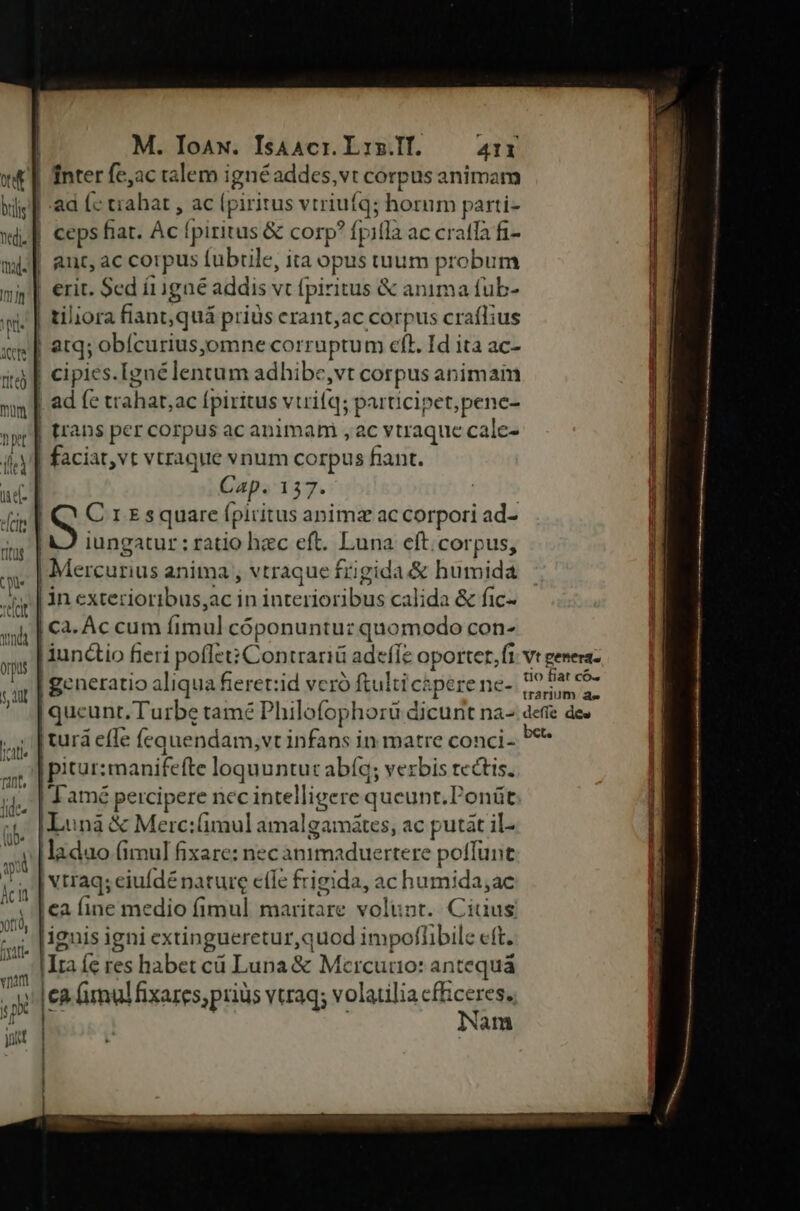 M. Ioan. Isaaci. Lib.II. 411
inter ſe,ac talem ignē addes,vt corpus animam
ad ſe trahat, ac ſpiritus vtriuſq; horum parti-
ceps fiat. Ac ſpiritus & corpꝰ ſpiſſa ac craſſa fi-
ant, ac corpus ſubtile, ita opus tuum probum
erit. Sed ſi ignē addis vt ſpiritus & anima ſub-
tiliora fiant,quā priùs erant,ac corpus craſſius
atq; obſcurius,omne corruptum eſt. Id ita ac-
cipies. Ignē lentum adhibe,vt corpus animam
ad ſe trahat,ac ſpiritus vtriſq; participet,pene-
trans per corpus ac animam , ac vtraque cale-
faciat,vt vtraque vnum corpus fiant.
Cap. 137.
SCies quare ſpiritus animæ ac corpori ad-
iungatur : ratio hæc eſt. Luna eſt corpus,
Mercurius anima , vtraque frigida & humida
in exterioribus,ac in interioribus calida & ſic-
ca. Ac cum ſimul cōponuntur quomodo con-
iunctio fieri poſſet? Contrariū adeſſe oportet,ſi
generatio aliqua fieret:id verò ſtulti capere ne-
queunt. Turbę tamē Philoſophorū dicunt na-
turā eſſe ſequendam,vt infans in matre conci-
pitur:manifeſte loquuntur abſq; verbis tectis.
Tamē percipere nec intelligere queunt. Ponūt
Lunā & Merc:ſimul amalgamātes, ac putāt il-
la duo ſimul fixare: nec animaduertere poſſunt
vtraq; eiuſdē naturę eſſe frigida, ac humida,ac
ea ſine medio ſimul maritare volunt. Citius
ignis igni extingueretur,quod impoſſibile eſt.
Ita ſe res habet cū Luna & Mercurio: antequā
ea ſimul fixares,priùs vtraq; volatilia efficeres.
Nam
Vt genera-
tio fiat cō-
trarium a-
deſſe de-
bet.